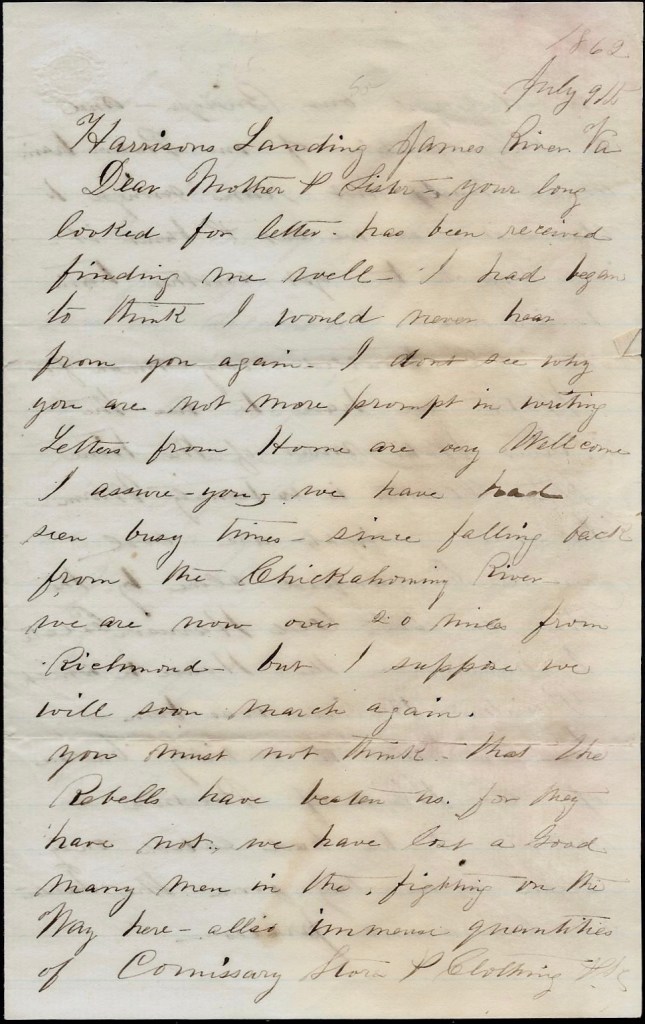 1862
July 9th
Harrisons Landing James River Va
Dear Mother & Sister - your long
looked for letter - has been received
finding me well - I had began
to think I would never hear
from you again - I dont see why
you are not more prompt in writing
Letters from Home are very Wellcome
I assure - you, we have had
seen busy times - since falling back
from the Chickahominy River -
we are now over 20 miles from
Richmond - but I suppose we
will soon march again.
you must not think - that the
Rebells have beaten us. for they
have not., we have lost a Good
many men in the, fighting on the
Way here - allso immense quantities
of Comissary Stors & Clothing